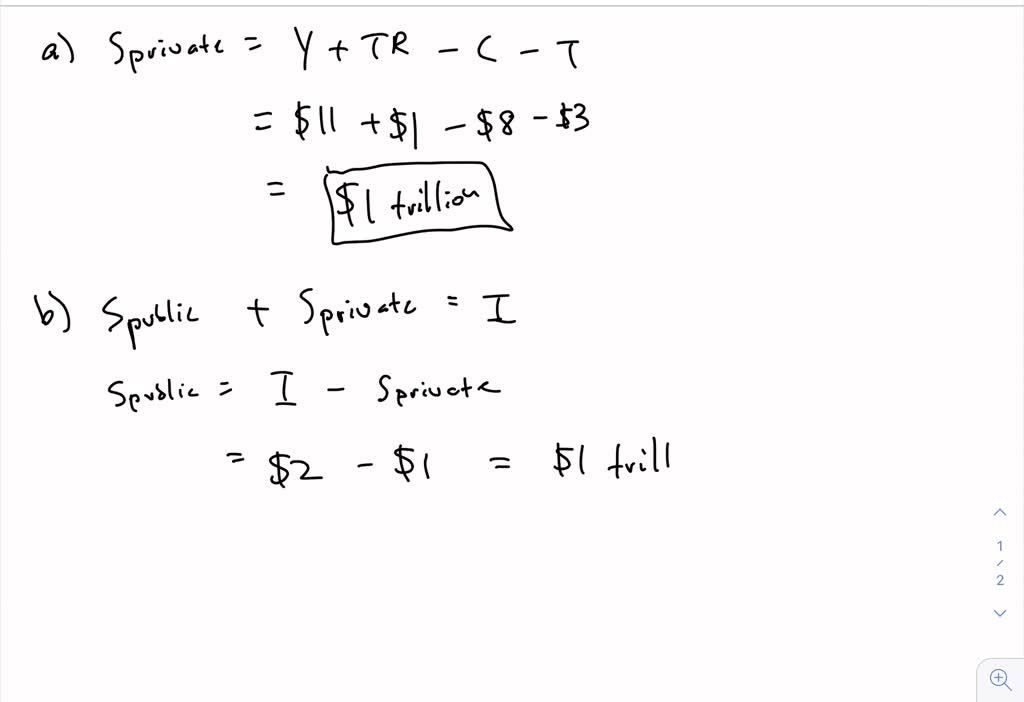 a) Sprivate = Y + TR - C - T
= $11 + $1 - $8 - $3
= $1 trillion
b) Spublic + Sprivate = I
Spublic = I - Sprivate
= $2 - $1 = $1 trill
1
/
2